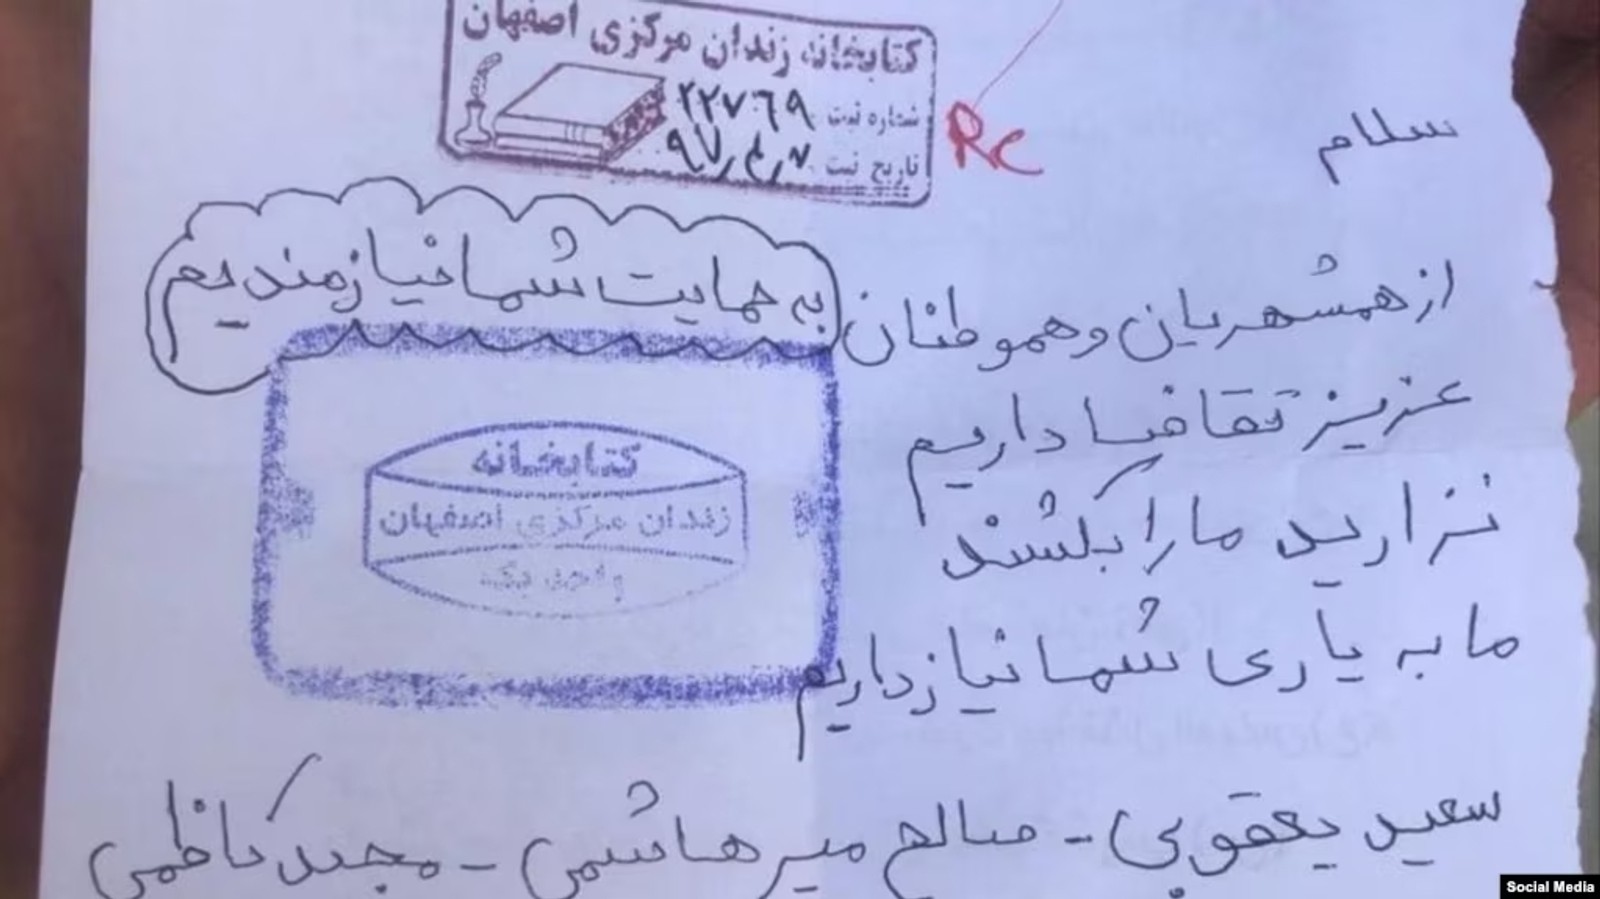 کتابخانه زندان مرکزی اصفهان
شماره ثبت ۲۲۷۶۹
تاریخ ثبت ۹۷٫۴٫۷
Re
سلام
از همشهریان و هموطنان به حمایت شما نیازمندیم
عزیز تقاضا داریم
نزارید ما را بکشند
ما به یاری شما نیاز داریم
کتابخانه
زندان مرکزی اصفهان
واحد یک
سعید یعقوبی - صالح میرهاشمی - مجید کاظمی
Social Media